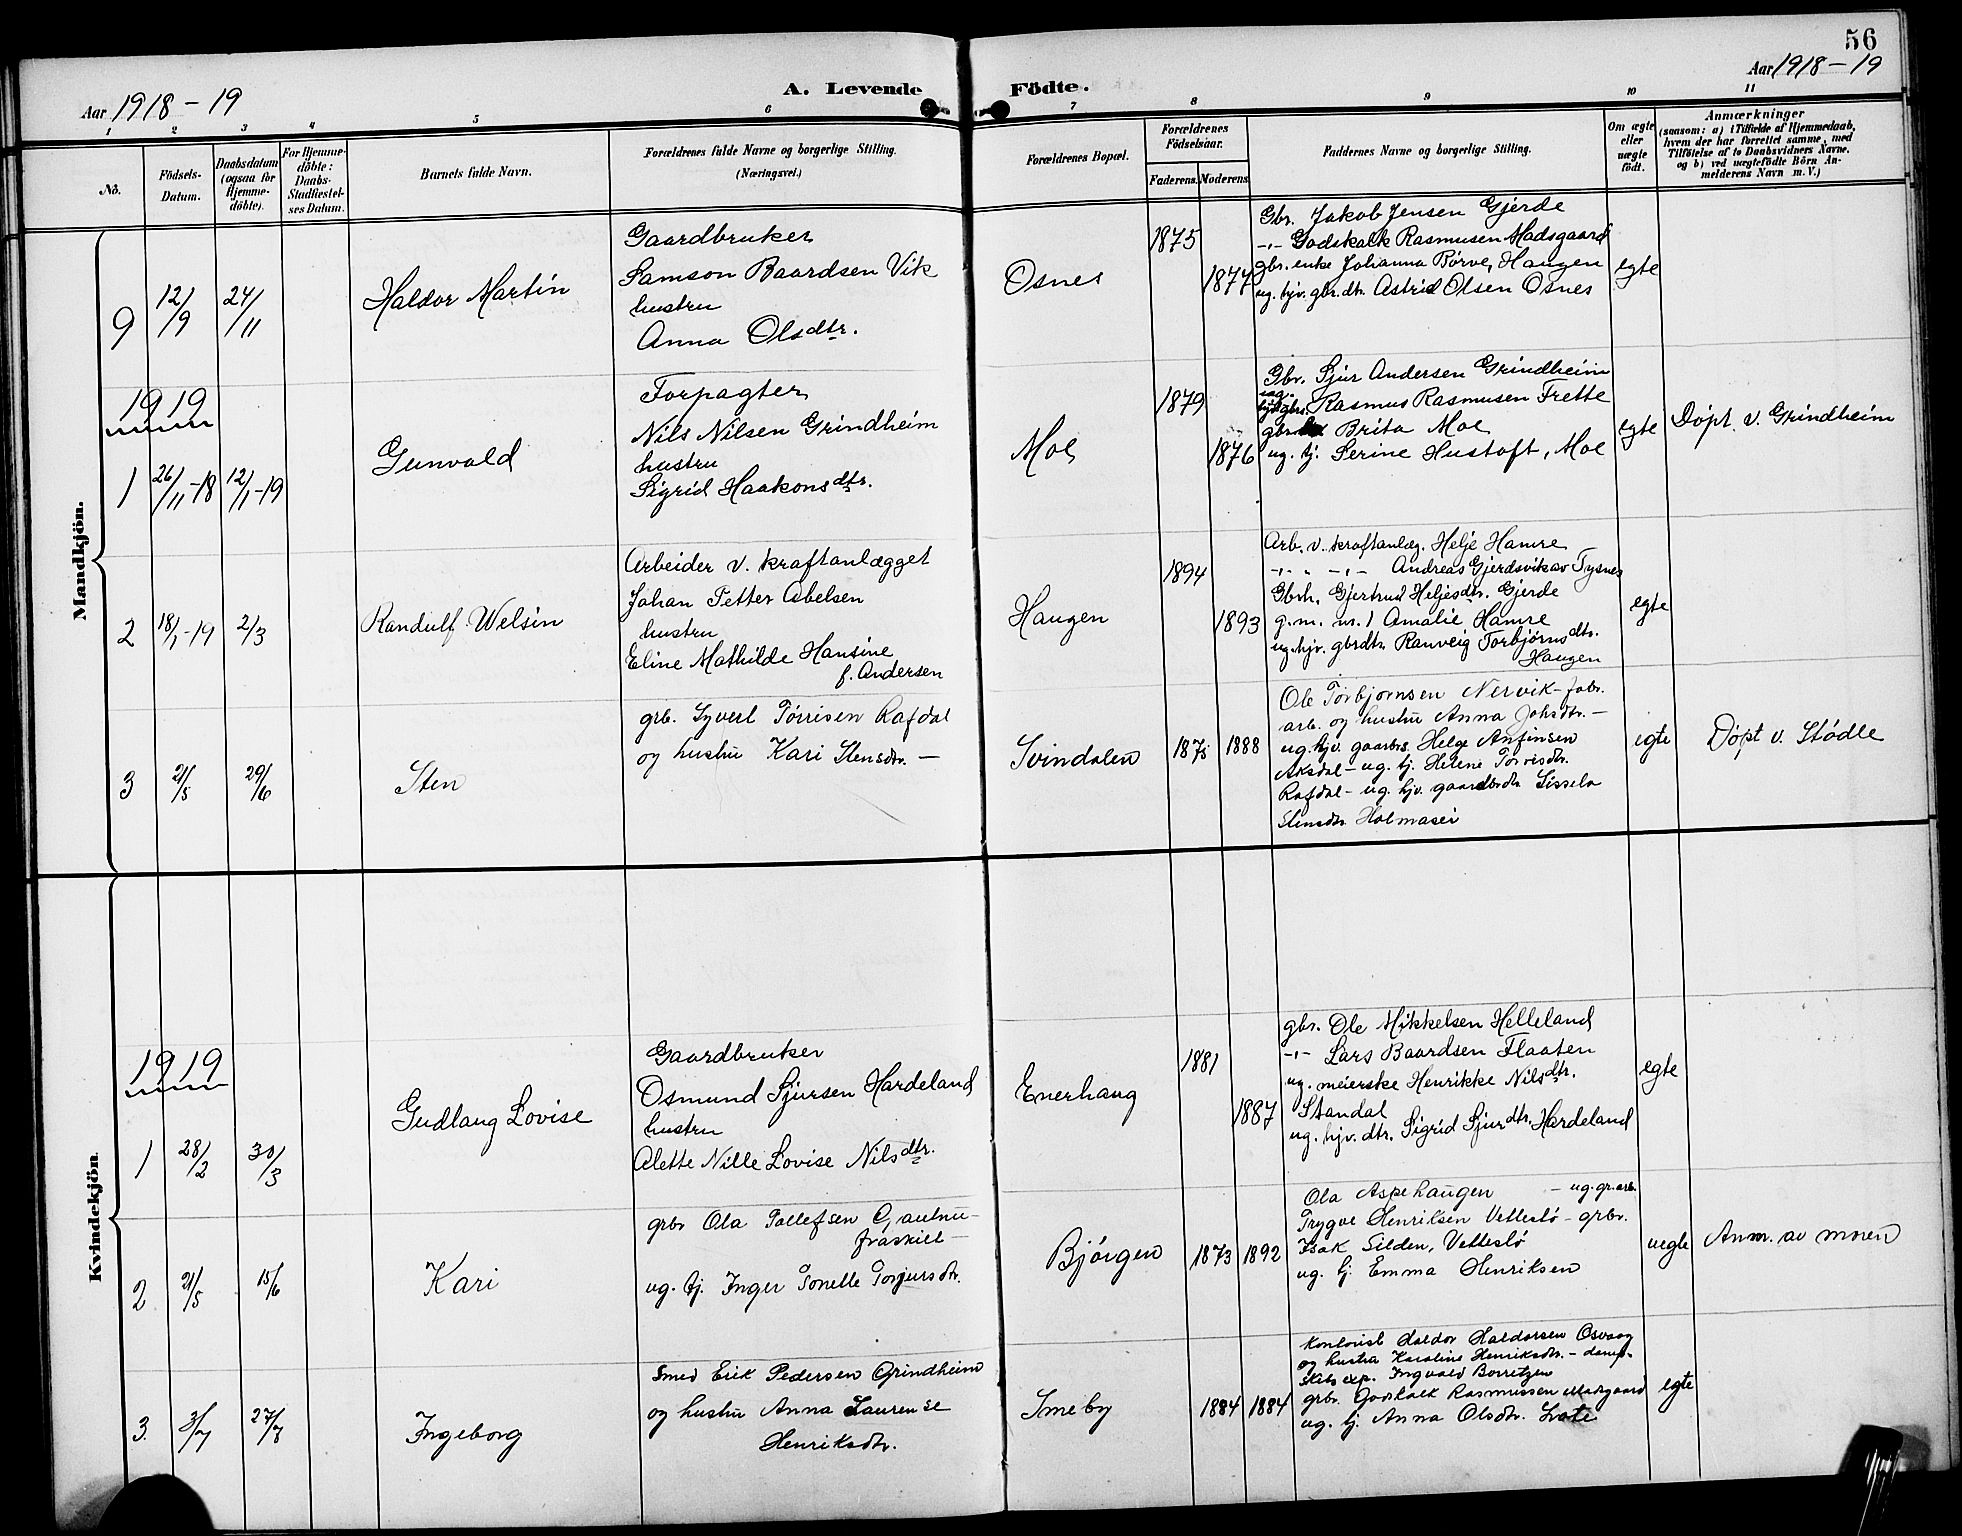 56
Aar 1918-19
A. Levende Födte.
Aar 1918-19
1 2 3 4 5 6 7 8 9 10 11
No.
Födsels-Datum.
Daabsdatum (ogsaa for Hjemme-döbte).
For Hjemme-döbte: Daabs-Stadfæstel-ses Datum.
Barnets fulde Navn.
Forældrenes fulde Navne og borgerlige Stilling.
(Næringsvei.)
Forældrenes Bopæl.
Forældrenes Födselsaar.
Faderens. Moderens.
Faddernes Navne og borgerlige Stilling.
Om ægte eller uægte födt.
Anmærkninger
(saasom: a) i Tilfælde af Hjemmedaab,
hvem der har forrettet samme, med
Tilföielse af to Daabsvidners Navne,
og b) ved uægtefödte Börn An-
melderens Navn m. V.)
Mandkjön.
9 12/9 24/11
Haldor Martin
Gaardbruker
Samson Baardsen Vik
hustru
Anna Olsdtr.
Osnes
1875
1874
Gbr. Jakob Jensen Gjerde
-"- Godskalk Rasmusen Madsgaard
gbr. enke Johanna Børve, Haugen
ug. hjv. gbr. dtr. Astrid Olsen Osnes
egte
1919
1 26/11-18 12/1-19
Gunvald
Forpagter
Nils Nilsen Grindheim
hustru
Sigrid Haakonsdtr.
Moe
1879
1876
Gbr. Sjur Andersen Grindheim
Rasmus Rasmusen Frette
Brita Moe
ug. tj. Serine Hustoft, Moe
egte
Døpt v. Grindheim
2 18/1-19 2/3
Randulf Welsin
Arbeider v. kraftanlægget
Johan Petter Abelsen
hustru
Eline Mathilde Hansine
f. Andersen
Haugen
1894
1893
Arb. v. kraftanlæg. Helje Hamre
-"- " -"- Andreas Gjerdsvik av Tysnes
Gbrh. Gjertrud Heljesdtr. Gjerde
g.m. nr. 1 Amalie Hamre
ug. hjv. gbrdtr. Ranveig Torbjørnsdtr.
Haugen
egte
3 21/5 29/6
Sten
grb. Syvert Tørrisen Rafdal
og hustru Kari Stensdtr. —
Svindalen
1875 1888
Ole Torbjørnsen Nervik - fabr.
arb. og hustru Anna Johsdtr. —
ug. hjv. gaarbrs. Helge Anfinsen
Aksdal - ug. tj. Helene Torrisdtr.
Rafdal - ug. hjv. gaardbrdtr. Sissela
Stensdtr. Holmasei
egte
Døpt v. Stødle
Kvindekjön.
1919
1 28/2 30/3
Gudlaug Lovise
Gaardbruker
Osmund Sjursen Hardeland
hustru
Alette Nille Lovise Nilsdtr.
Enerhaug
1881
1887
gbr. Ole Mikkelsen Helleland
-"- Lars Baardsen Flaaten
ug. meierske Henrikke Nilsdtr.
Standal
ug. hjv. dtr. Sigrid Sjurdtr. Hardeland
egte
2 21/5 15/6
Kari
grbr Ola Tollefsen Gjautnu-
fraskilt —
ug. tj. Inger Tonette Torjursdtr.
Bjørgen
1873 1892
Ola Aspehaugen - ug. gr. arb.
Trygve Henriksen Vettestø - grbr.
Isak Silden, Vettestø
ug. tj. Emma Henriksen
uegte
Anm. av moren
3. 3/7 27/7
Ingeborg
Smed Erik Pedersen Grindheim
og hustru Anna Laurense
Henriksdtr.
Smeby
1884 1884
Kontorist Haldor Haldorsen Osvaag
og hustru Karoline Henriksdtr. - damp-
skibs exp. Ingvald Borretzen
grbr. Godskalk Rasmussen Madsgaard
ug. tj. Anna Olsdtr.
egte